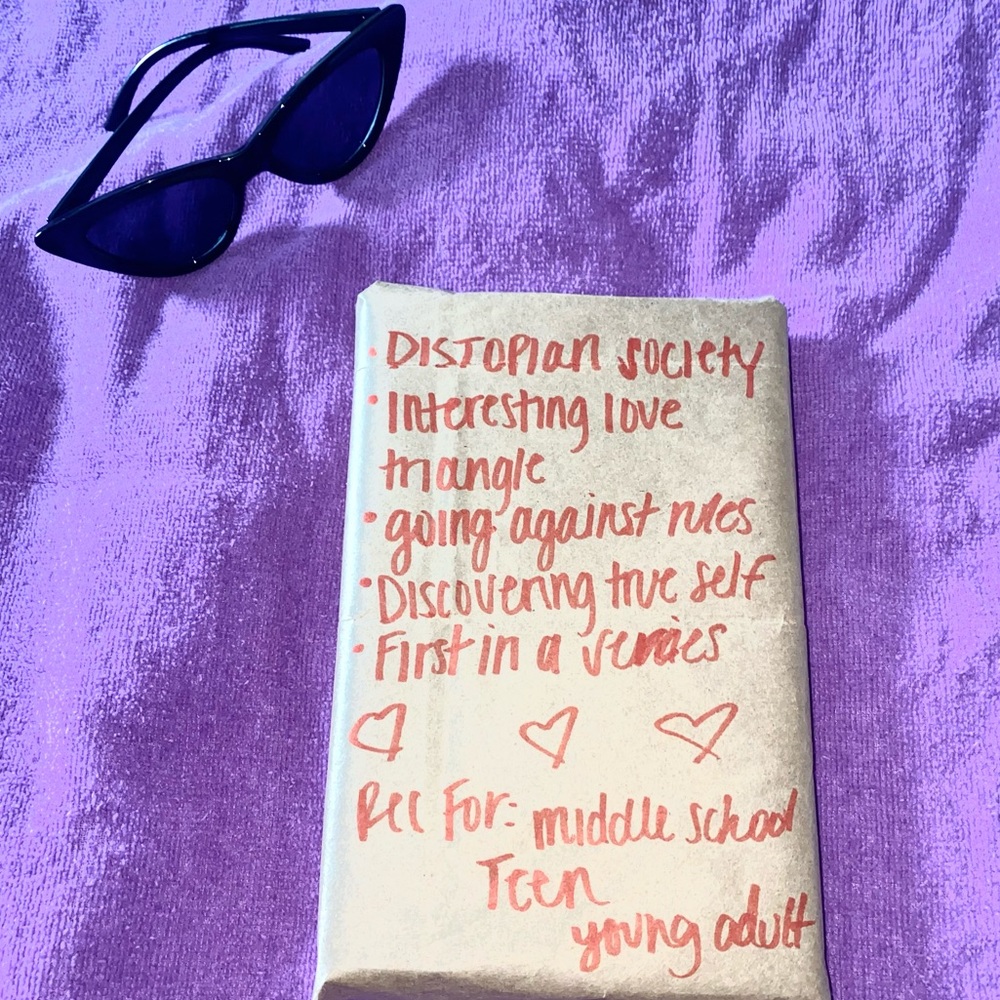 • DISTOPIAN society
• Interesting love
triangle
• going against rules
• Discovering true self
• First in a series
Rec For: middle school
Teen
young adult